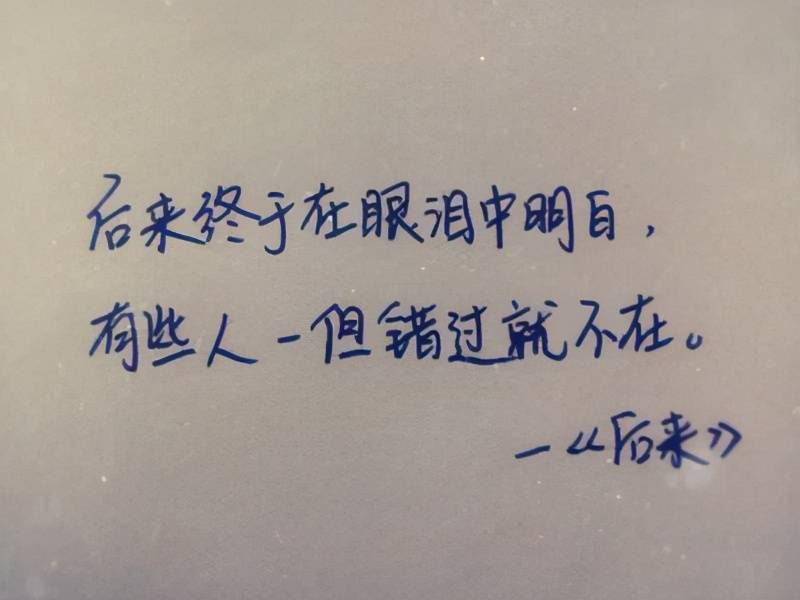 后来终于在眼泪中明白，
有些人一但错过就不在。
—《后来》